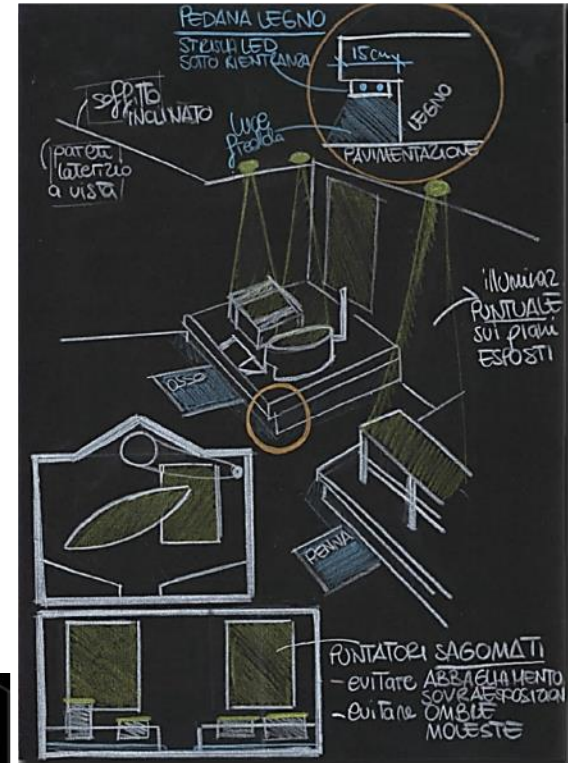 PEDANA LEGNO
STRISCIA LED
SOTTO RIENTRANZA
15cm
LEGNO
luce
fredda
PAVIMENTAZIONE
soffitto
INCLINATO
pareti
laterizio
a vista
illuminaz
PUNTUALE
sui piani
ESPOSTI
OSSO
PENNA
PUNTATORI SAGOMATI
- evitare ABBAGLIAMENTO
SOVRAESPOSIZION
- evitare OMBRE
MOLESTE